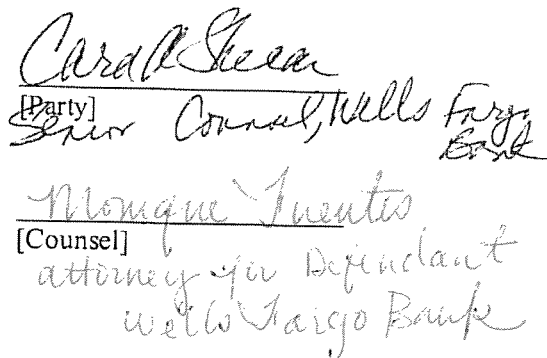 Cara A Shear
[Party]
Senior Counsel, Wells Fargo
Bank
Monique Fuentes
[Counsel]
attorney for Defendant
Wells Fargo Bank